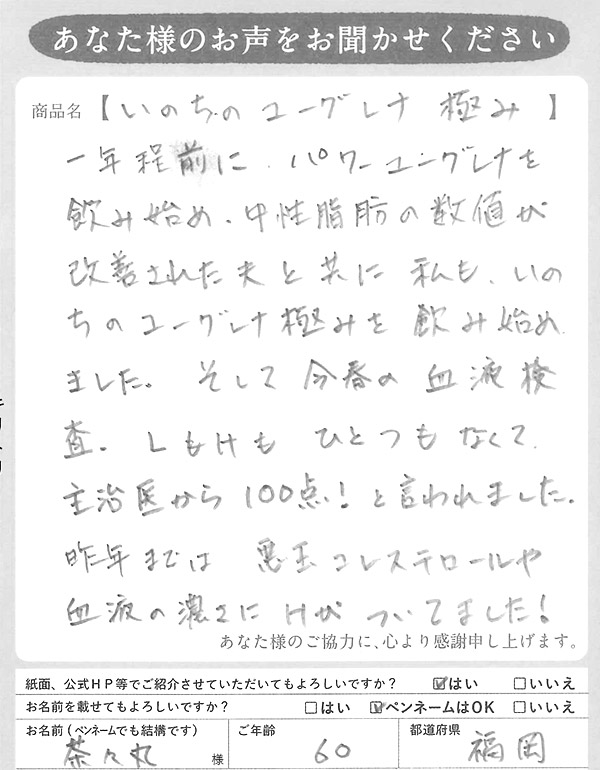 あなた様のお声をお聞かせください
商品名【いのちのユーグレナ 極み】
一年程前に、パワーユーグレナを
飲み始め、中性脂肪の数値が
改善された夫と共に 私も、いの
ちのユーグレナ極みを飲み始め
ました。そして今春の血液検
査。LもHも ひとつもなくて、
主治医から100点!と言われました。
昨年までは 悪玉コレステロールや
血液の濃さに Hがついてました!
あなた様のご協力に、心より感謝申し上げます。
紙面、公式HP等でご紹介させていただいてもよろしいですか? ☑はい □いいえ
お名前を載せてもよろしいですか? □はい ☑ペンネームはOK □いいえ
お名前(ペンネームでも結構です) 茶々丸 様
ご年齢 60
都道府県 福岡